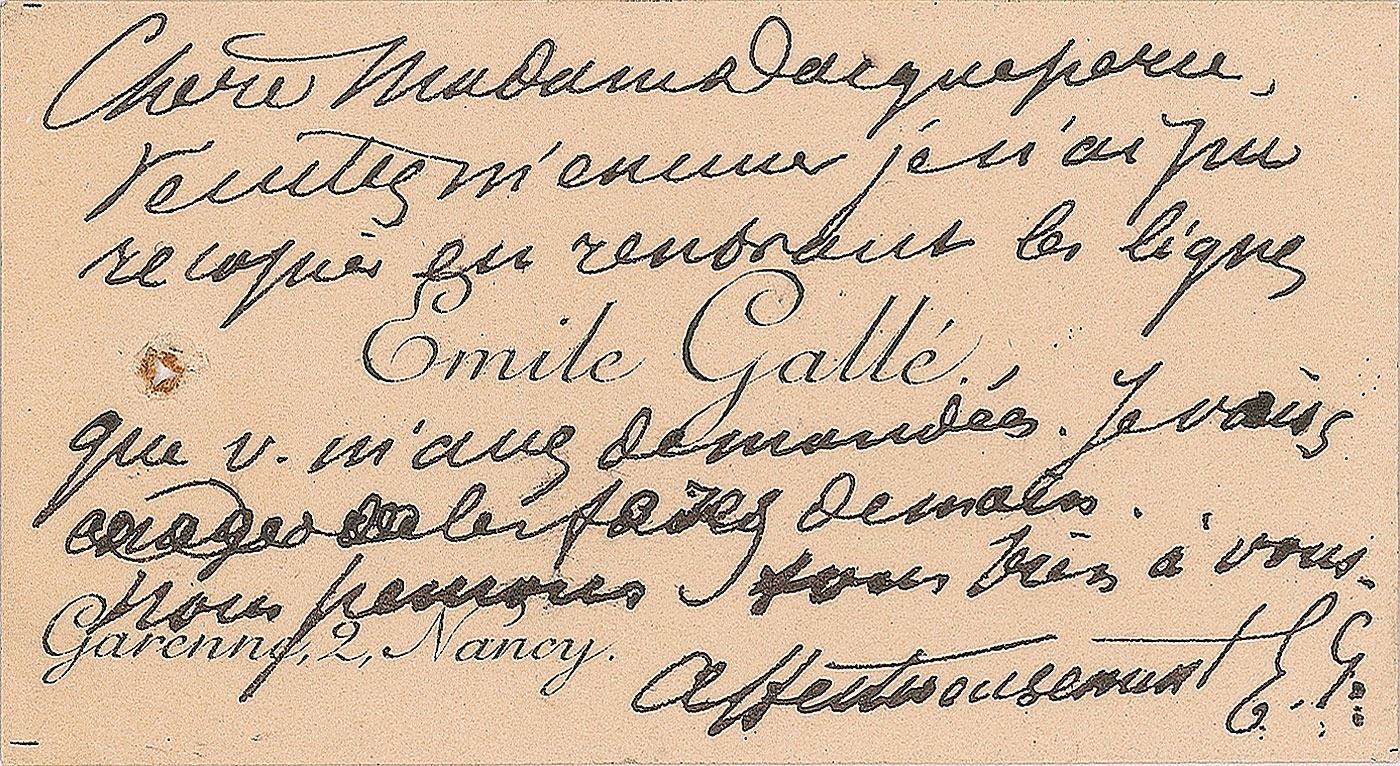 Chère Madame Daigueperse,
Veuillez m'excuser je n'ai pu
recopier en rentrant les lignes
Emile Gallé.
que v. m'avez demandées. Je vais
de les faire demain.
Nous pensons tous bien à vous.
Garenne, 2, Nancy.
Affectueusement E. G.